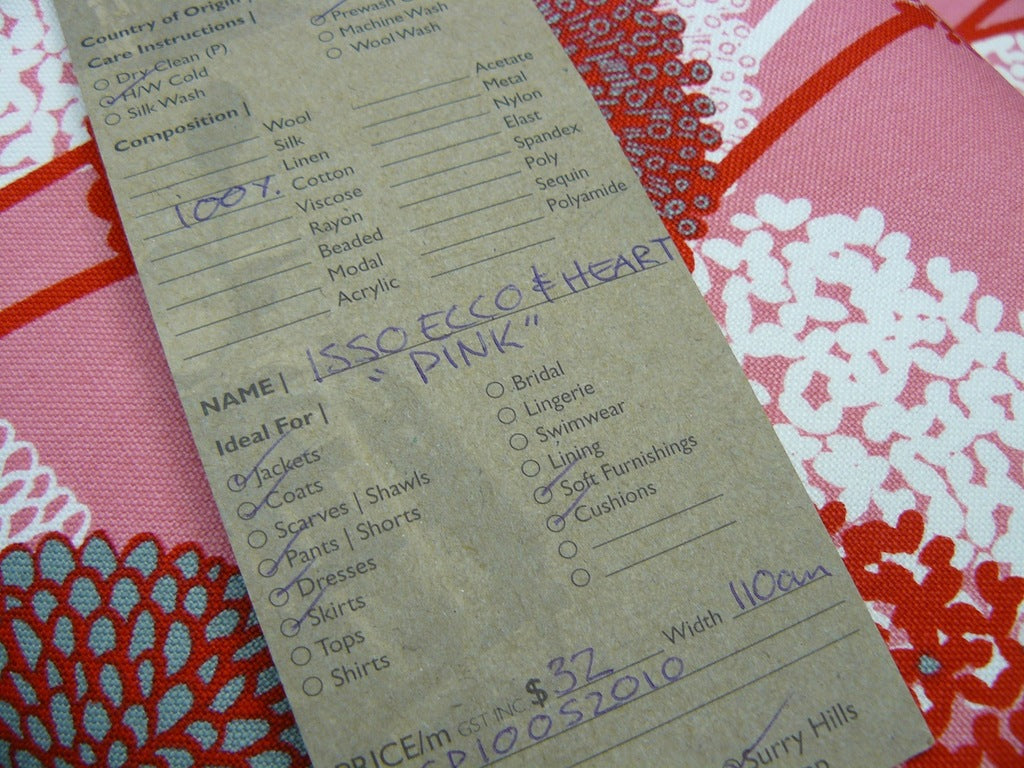 Country of Origin |
Care Instructions |
Dry Clean (P)
H/W Cold
Silk Wash
Prewash
Machine Wash
Wool Wash
Composition |
Wool
Silk
Linen
100% Cotton
Viscose
Rayon
Beaded
Modal
Acrylic
Acetate
Metal
Nylon
Elast
Spandex
Poly
Sequin
Polyamide
NAME | ISSO ECCO & HEART
"PINK"
Ideal For |
Jackets
Coats
Scarves | Shawls
Pants | Shorts
Dresses
Skirts
Tops
Shirts
Bridal
Lingerie
Swimwear
Lining
Soft Furnishings
Cushions
PRICE/m GST INC $32 Width 110cm
SP100S2010
Surry Hills